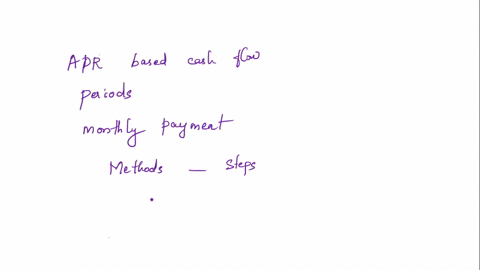 APR based cash flow
periods
monthly payment
Methods — Steps